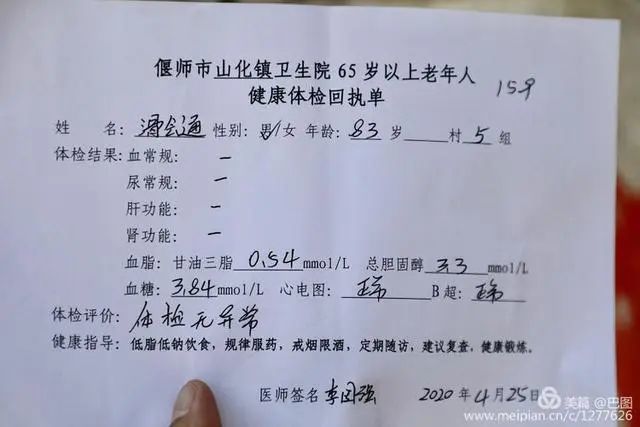 偃师市山化镇卫生院 65 岁以上老年人
健康体检回执单
159
姓 名：会通 性别：男/女 年龄：83 岁____村 5 组
体检结果：血常规： 一
尿常规： 一
肝功能： 一
肾功能： 一
血脂：甘油三脂 0.54 mmol/L 总胆固醇 3.3 mmol/L
血糖：3.84 mmol/L 心电图：正常 B 超：正常
体检评价：体检无异常
健康指导：低脂低钠饮食，规律服药，戒烟限酒，定期随访，建议复查，健康锻炼。
医师签名 李国强 2020 年 4 月 25 日
美篇 @巴图
www.meipian.cn/c/1277626